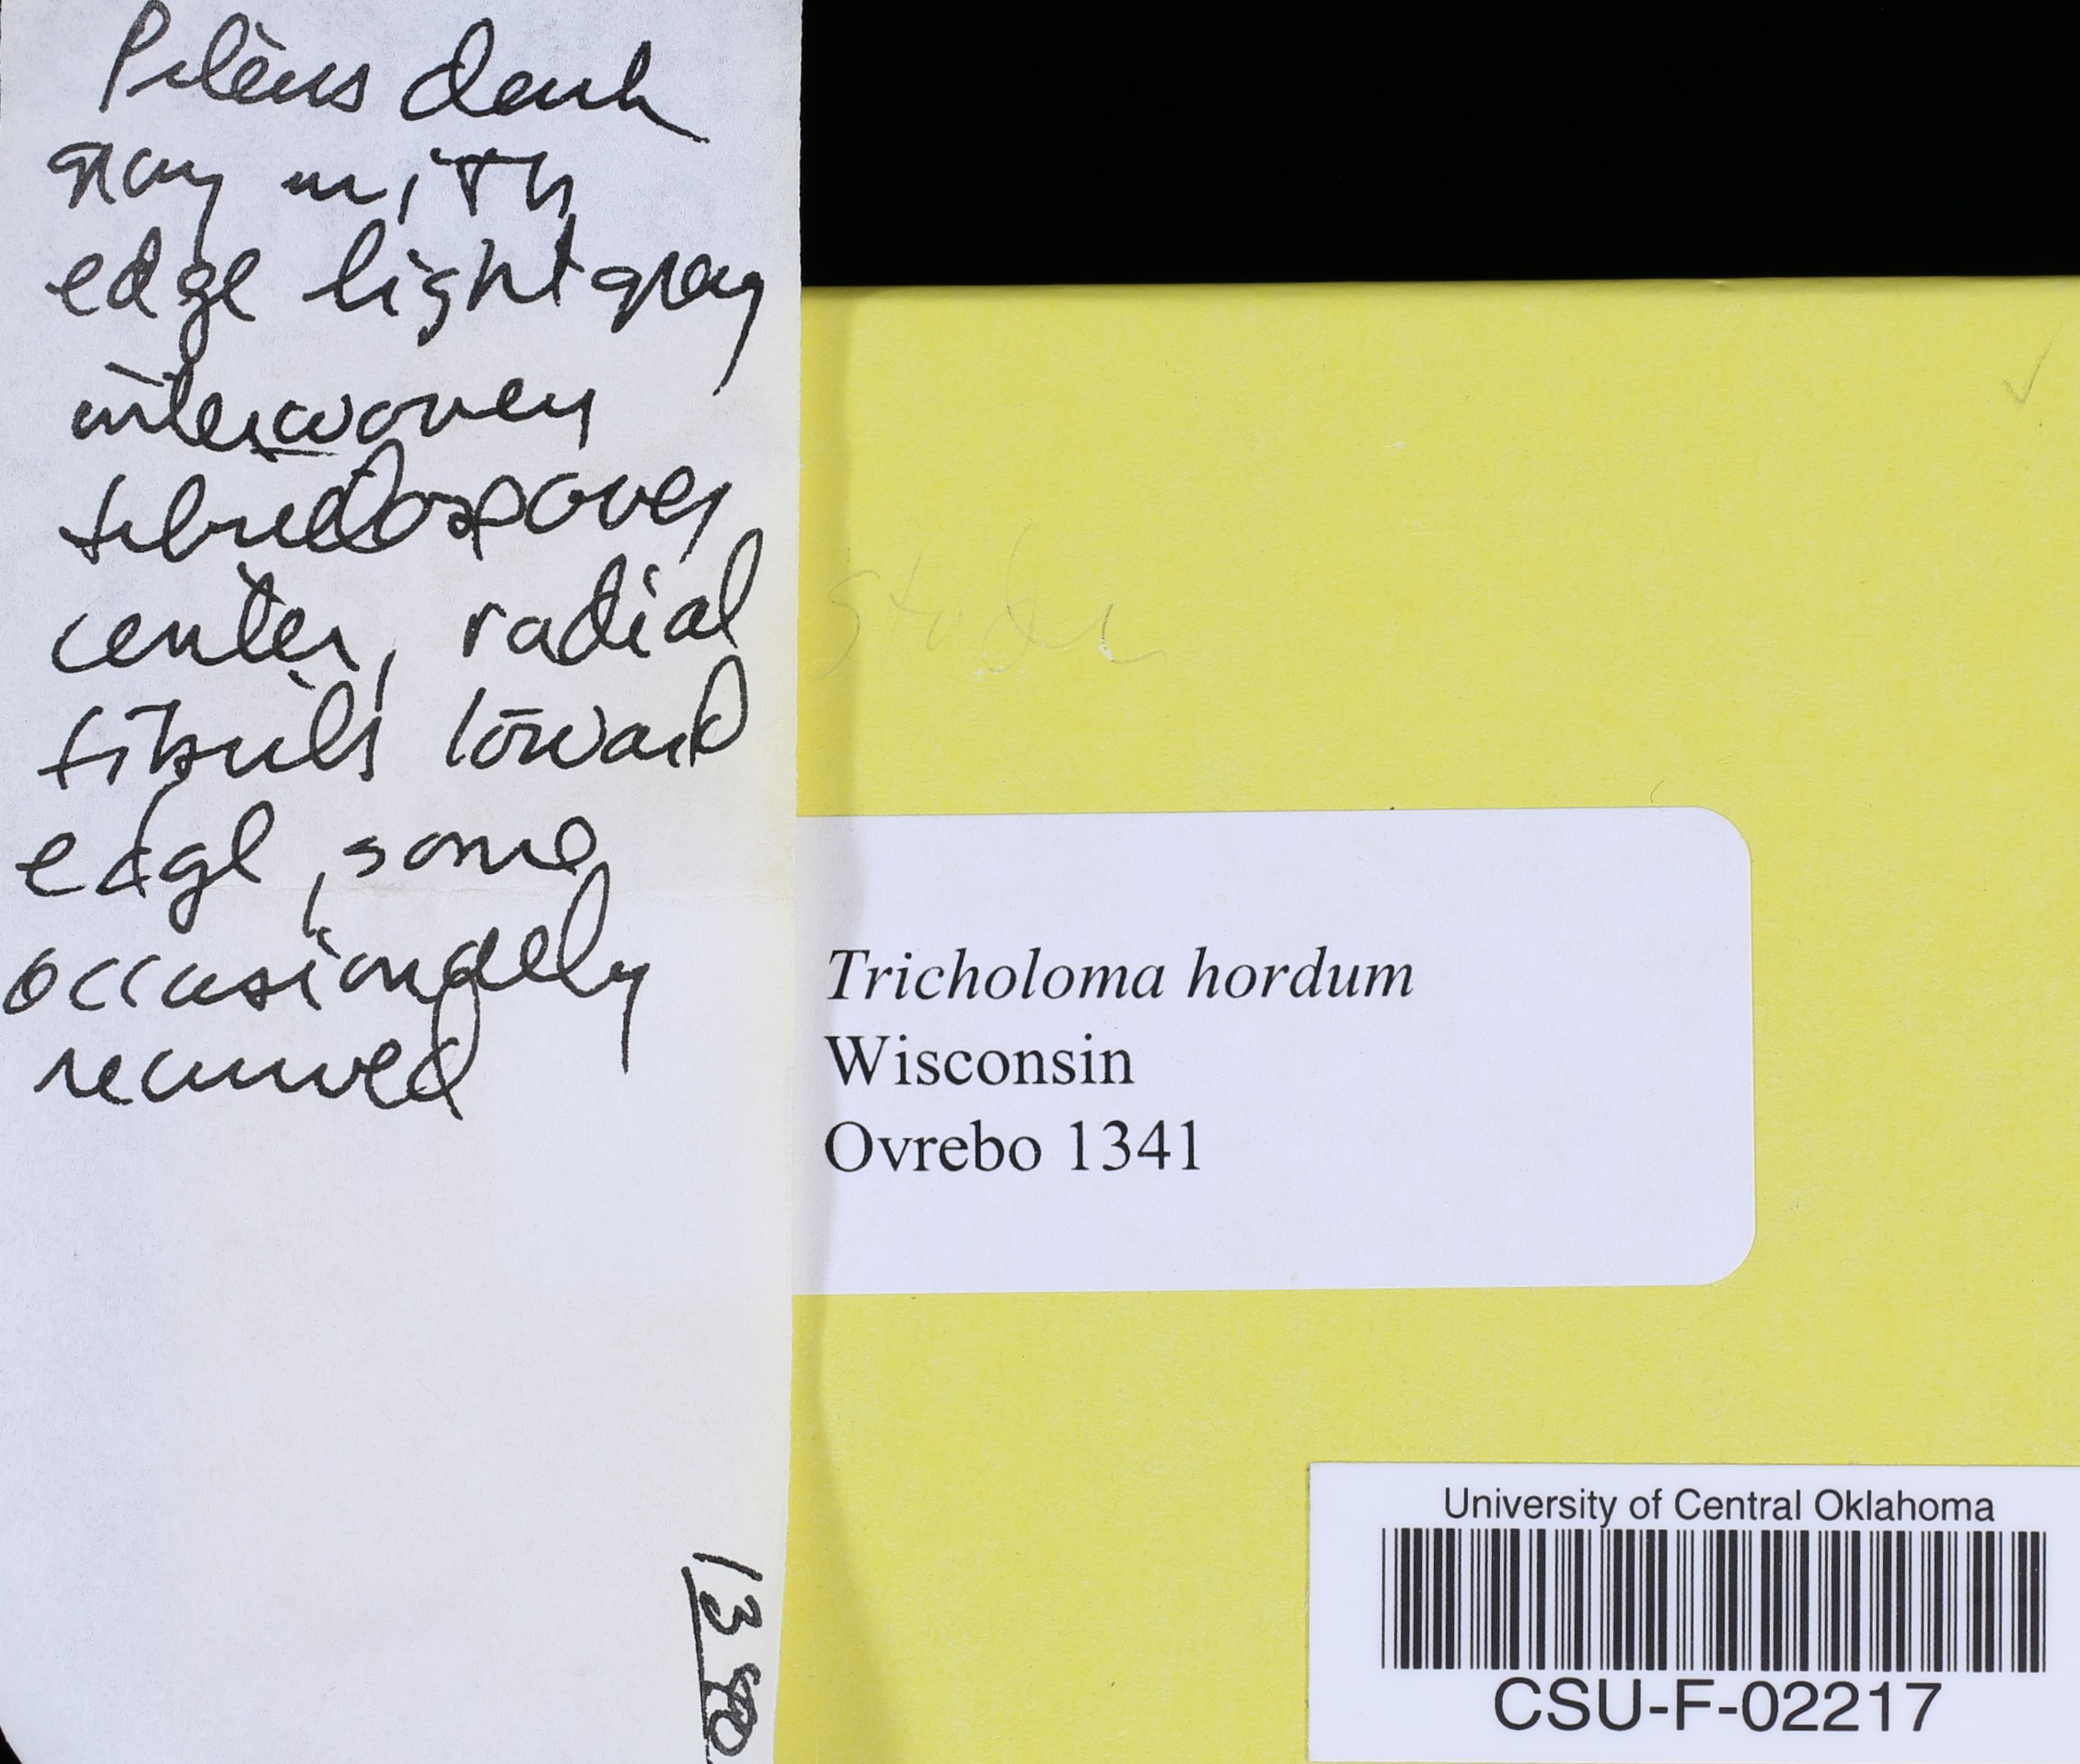 Pileus dark
gray with
edge light gray
interwoven
fibrillose over
center, radial
fibrils toward
edge, some
occasionally
recurved
Tricholoma hordum
Wisconsin
Ovrebo 1341
University of Central Oklahoma
CSU-F-02217